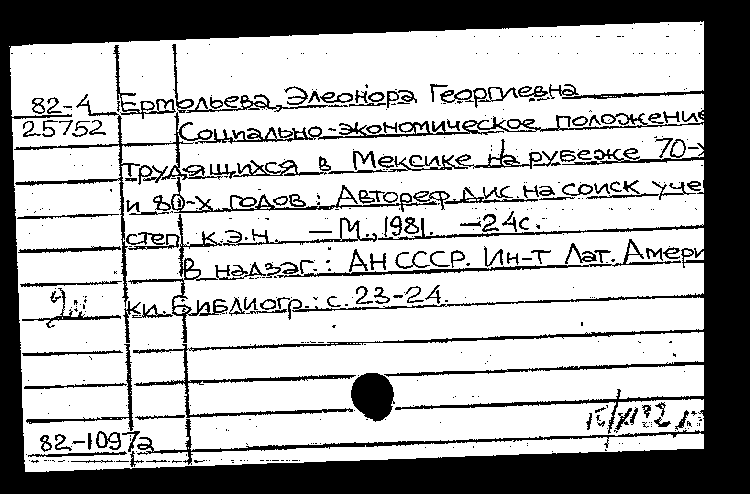 82-4 Ермольева, Элеонора Георгиевна
25752 Социально-экономическое положение
трудящихся в Мексике на рубеже 70-х
и 80-х годов : Автореф. дис. на соиск. уче
степ. к.э.н. — М., 1981. — 24с.
В надзаг.: АН СССР. Ин-т Лат. Амери
ки. Библиогр.: с. 23-24.
82-1097а